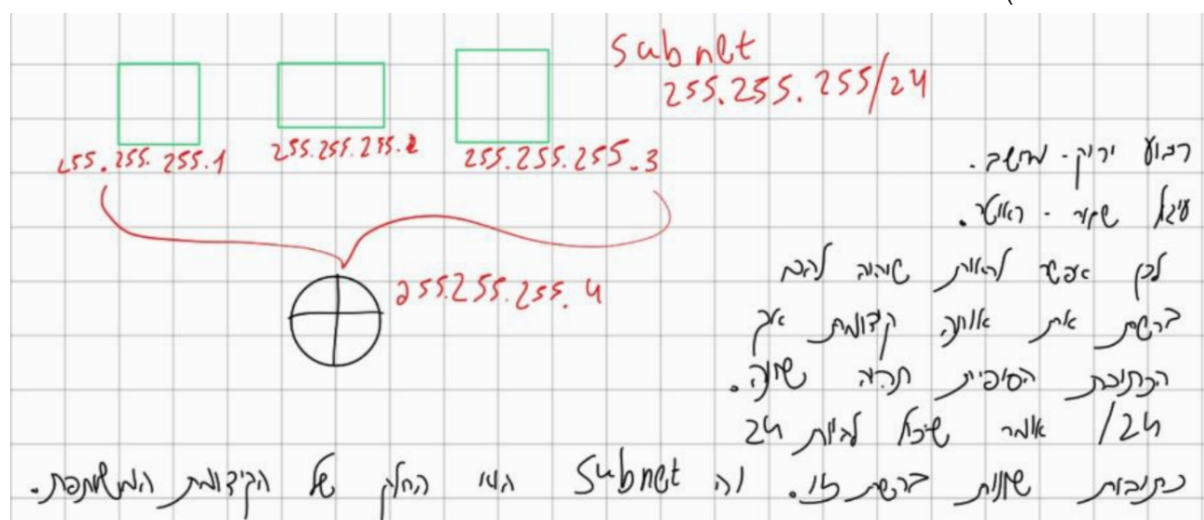 subnet
255.255.255/24
255.255.255.1
255.255.255.2
255.255.255.3
255.255.255.4
ריבוע ירוק - מחשב.
עיגול שחור - ראוטר.
לכן אפשר לראות שיהיה להם
ברשת את אותה קידומת אך
הכתובת הסופית תהיה שונה.
/24 אומר שיכול להיות 24
כתובות שונות ברשת זו. וה subnet הוא החלק של הקידומת המשותפת.